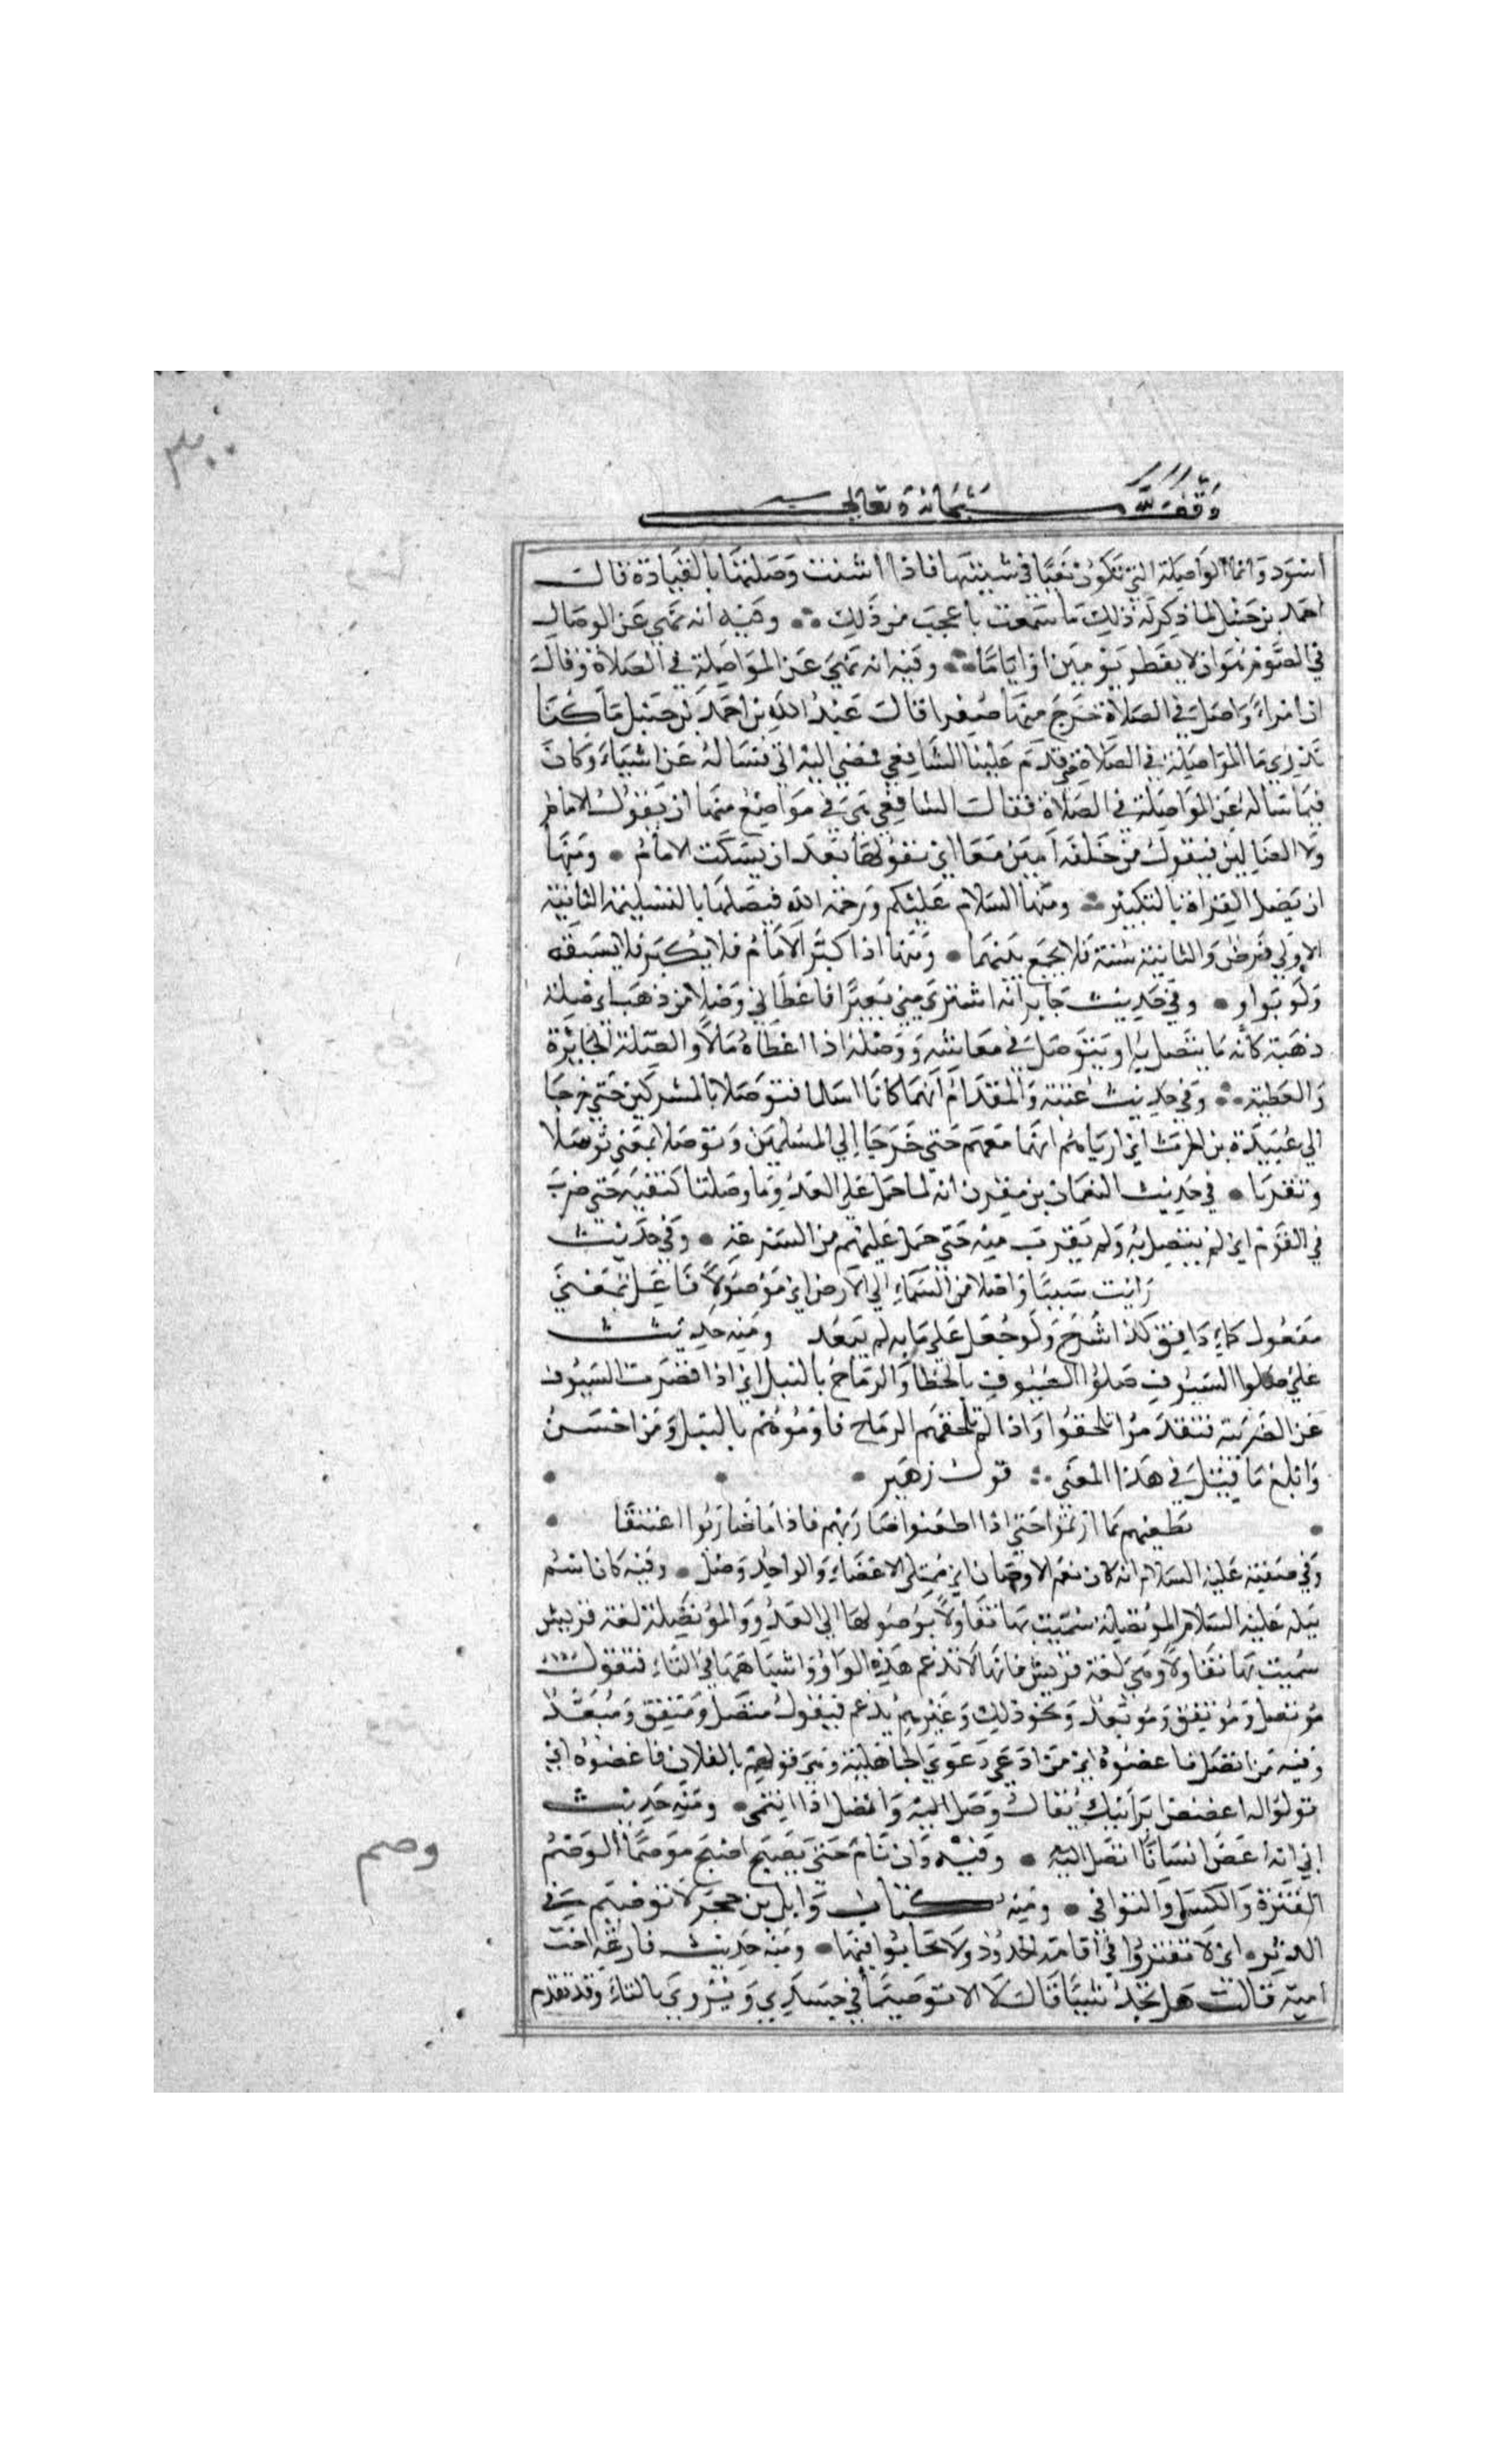 ٣٠٠
وقف لله سبحانه وتعالى
اسود وانما الواصلة التي تكون بغيا في شبيبتها فاذا اسنت وصلتها بالقيادة قال
احمد بن حنبل لما ذكر له ذلك ما سمعت باعجب من ذلك وفيه انه نهي عن الوصال
في الصوم هو ان لا يفطر يومين او اياما وفيه انه نهي عن المواصلة في الصلاة وقال
ان امرأ واصل في الصلاة خرج منها صفرا قال عبد الله بن احمد بن حنبل ما كنا
ندري ما المواصلة في الصلاة حتى قدم علينا الشافعي فمضي اليه ابي فساله عن اشياء وكان
فيما ساله عن المواصلة في الصلاة فقال الشافعي هي في مواضع منها ان يقول الامام
ولا الضالين فيقول من خلفه آمين معا اي يقولها بعد ان يسكت الامام ومنها
ان يصل القراة بالتكبير ومنها السلام عليكم ورحمة الله فيصلها بالتسليمة الثانية
الاولي فرض والثانية سنة فلا يجمع بينهما ومنها اذا كبر الامام فلا يكبر فلا يسبقه
ولو بواو وفي حديث جابر انه اشتري مني بعيرا فاعطاني وصلا من ذهب اي صلة
ذهبة كانه ما يتصل به او يتوصل في معاشه ووصله اذا اعطاه مالا والصلة الجائزة
والعطية وفي حديث عتبة والمقدام انهما كانا اسلما فتوصلا بالمشركين حتي خرجا
الي عبيدة بن الحرث اي ارياهم انهما معهم حتي خرجا الي المسلمين وتوصلا بمعني توسلا
وتقربا في حديث النعمان بن مقرن انه لما حمل علي العدو وما وصلنا كتفيه حتي ضرب
في القوم اي لم يتصل به ولم يقرب منه حتي حمل عليهم من السرعة وفي حديث
رايت سببا واصلا من السماء الي الارض اي موصولا فاعل بمعني
مفعول كماء دافق كذا شرح ولو جعل علي بابه لم يبعد ومنه حديث
علي صلوا السيوف بالخطا والرماح بالنبل اي اذا قصرت السيوف
عن الضريبة فتقدموا تلحقوا واذا لم تلحقهم الرماح فارموهم بالنبل ومن احسن
وابلغ ما قيل في هذا المعني قول زهير
يطعنهم ما ارتموا حتي اذا اطعنوا ضاربهم فاذا ما ضاربوا اعتنقا
وفي صفته عليه السلام انه كان فعم الاوصال اي ممتلي الاعضاء والواحد وصل وفيه كان اسم
نبله عليه السلام الموتصلة سميت بها تفاولا بوصولها الي العدو والموتصلة لغة قريش
سميت بها تفاولا وهي لغة قريش فانها لا تدغم هذه الواو واشباهها في التاء فتقول
موتصل وموتفق وموتعد ونحو ذلك وغيرهم يدغم فيقول متصل ومتفق ومتعد
وفيه من اتصل فاعضوه اي من ادعي دعوي الجاهلية وهي قولهم يالفلان فاعضوه اي
قولوا له اعضض اير ابيك يقال وصل اليه واتصل اذا انتمي ومنه حديث
ابي انه اعض انسانا اتصل اليه وفيه وان نام حتي يصبح اصبح موصما الوصم
الفترة والكسل والتواني ومنه كتاب وايل بن حجر لا توصيم في
الدين اي لا تفتروا في اقامة الحدود ولا تحابوا فيها ومنه حديث فارعة اخت
امية قالت هل تجد شييا قال لا الا توصيما في جسدي ويروي بالتاء وقد تقدم
وصم